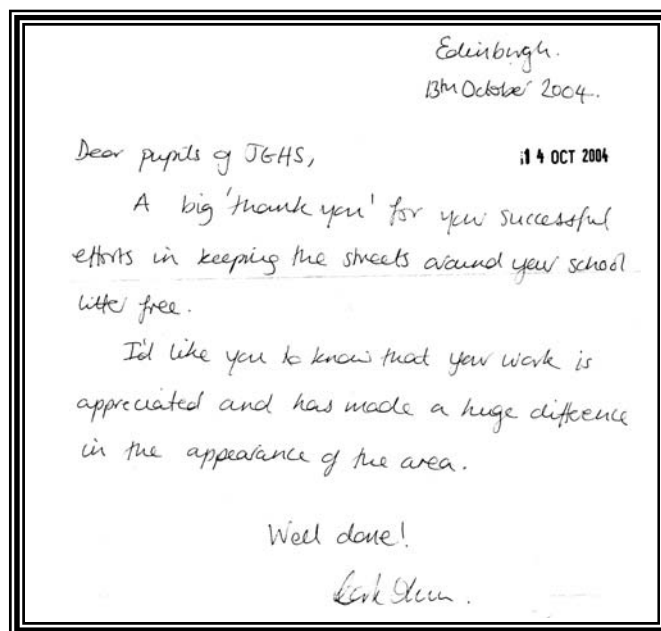 Edinburgh.
13th October 2004.
Dear pupils of JGHS,
14 OCT 2004
A big 'thank you' for your successful
efforts in keeping the streets around your school
litter free.
I'd like you to know that your work is
appreciated and has made a huge difference
in the appearance of the area.
Well done!